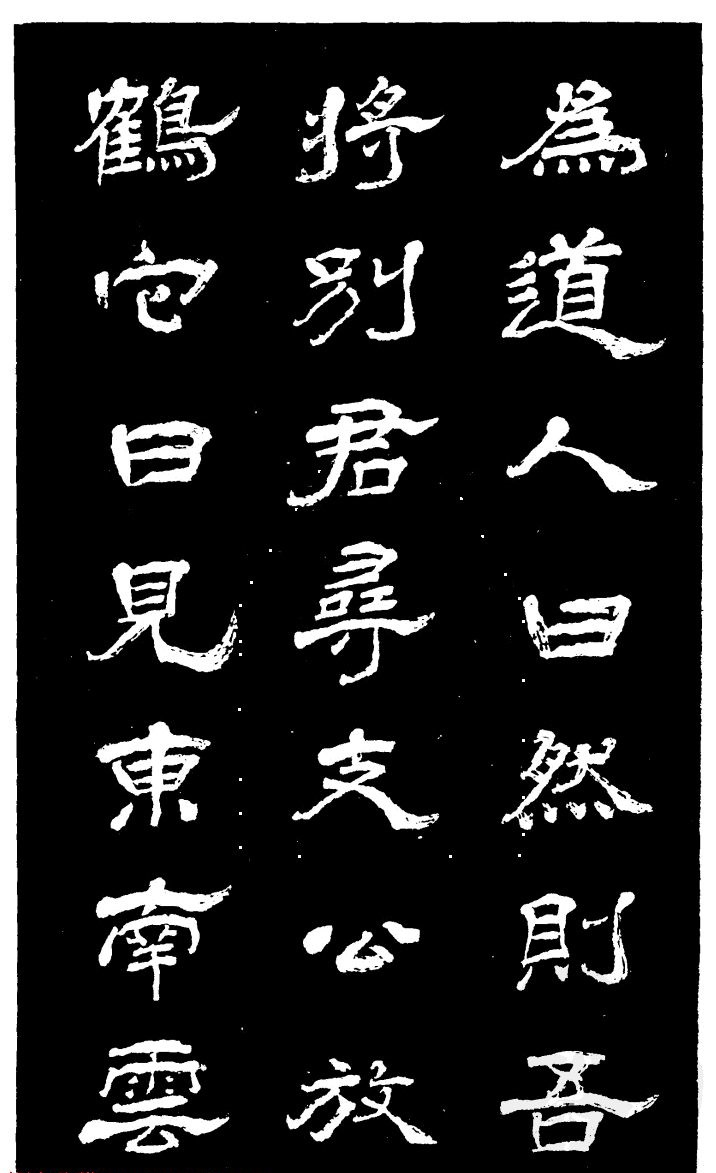 為道人曰然則吾
將別君尋支公放
鶴它曰見東南雲